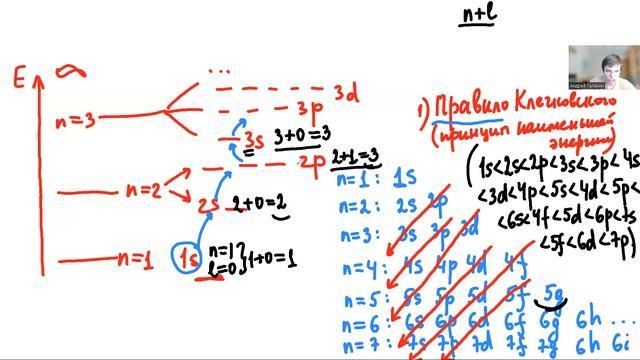 n+l
E
∞
...
3d
n=3
3p
3s
3+0=3
2p
2+1=3
n=2
2s
2+0=2
n=1
1s
n=1
l=0
}1+0=1
Андрей
1) Правило Клечковского
(принцип наименьшей
энергии)
(1s<2s<2p<3s<3p<4s
<3d<4p<5s<4d<5p<
<6s<4f<5d<6p<7s
<5f<6d<7p)
n=1: 1s
n=2: 2s 2p
n=3: 3s 3p 3d
n=4: 4s 4p 4d 4f
n=5: 5s 5p 5d 5f 5g
n=6: 6s 6p 6d 6f 6g 6h ...
n=7: 7s 7p 7d 7f 7g 6h 6i